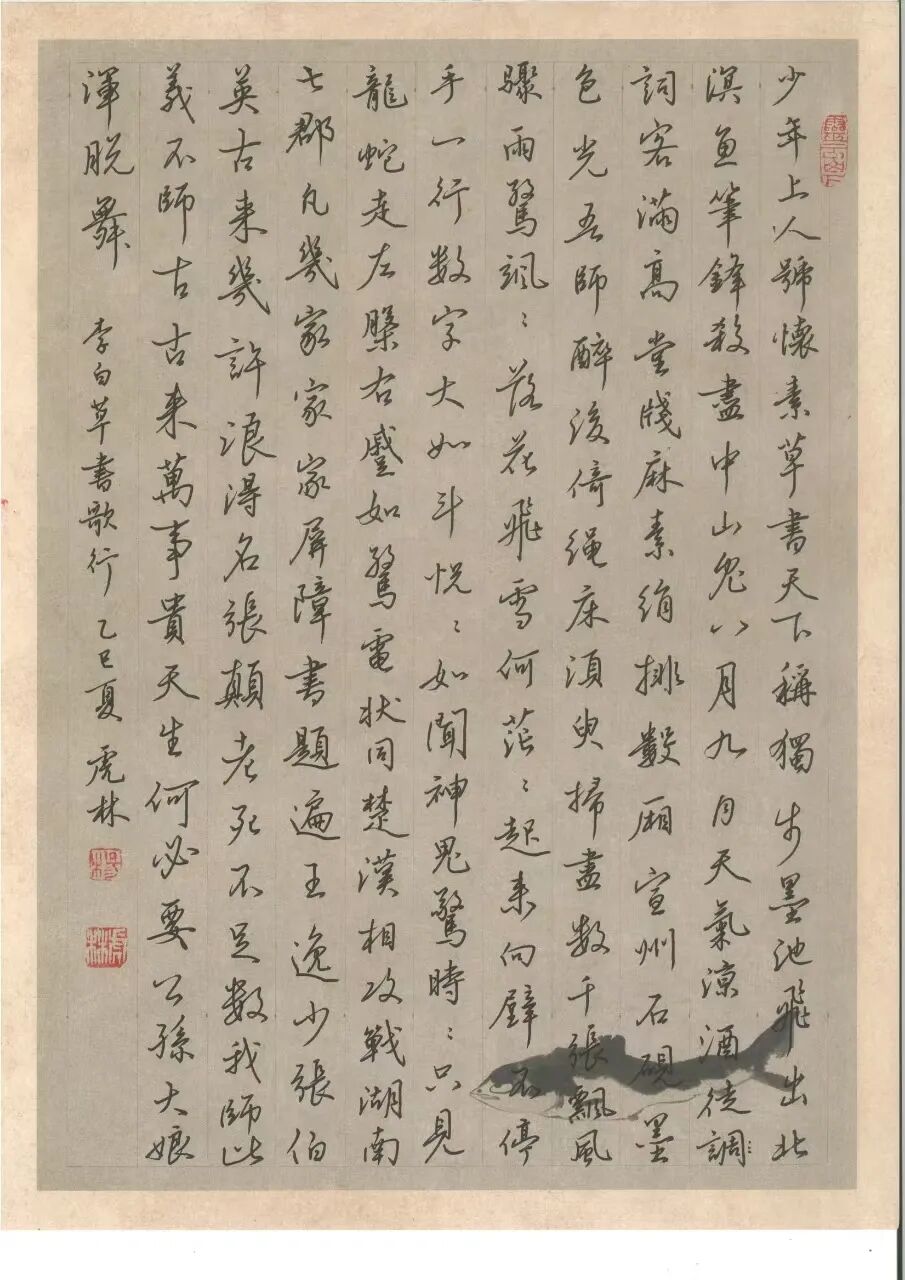 少年上人號懷素草書天下稱獨步墨池飛出北
溟魚筆鋒殺盡中山兔八月九月天氣涼酒徒調
詞客滿高堂牋麻素絹排數厢宣州石硯墨
色光吾師醉後倚繩床須臾掃盡數千張飄風
驟雨驚颯〻落花飛雪何茫〻起來向壁不停
手一行数字大如斗怳〻如聞神鬼驚時〻只見
龍蛇走左槃右蹙如驚電狀同楚漢相攻戰湖南
七郡凡幾家家家屏障書題遍王逸少張伯
英古来幾許浪得名張顛老死不足数我師此
義不師古古来萬事貴天生何必要公孫大娘
渾脱舞
李白草書歌行 乙巳夏 虎林